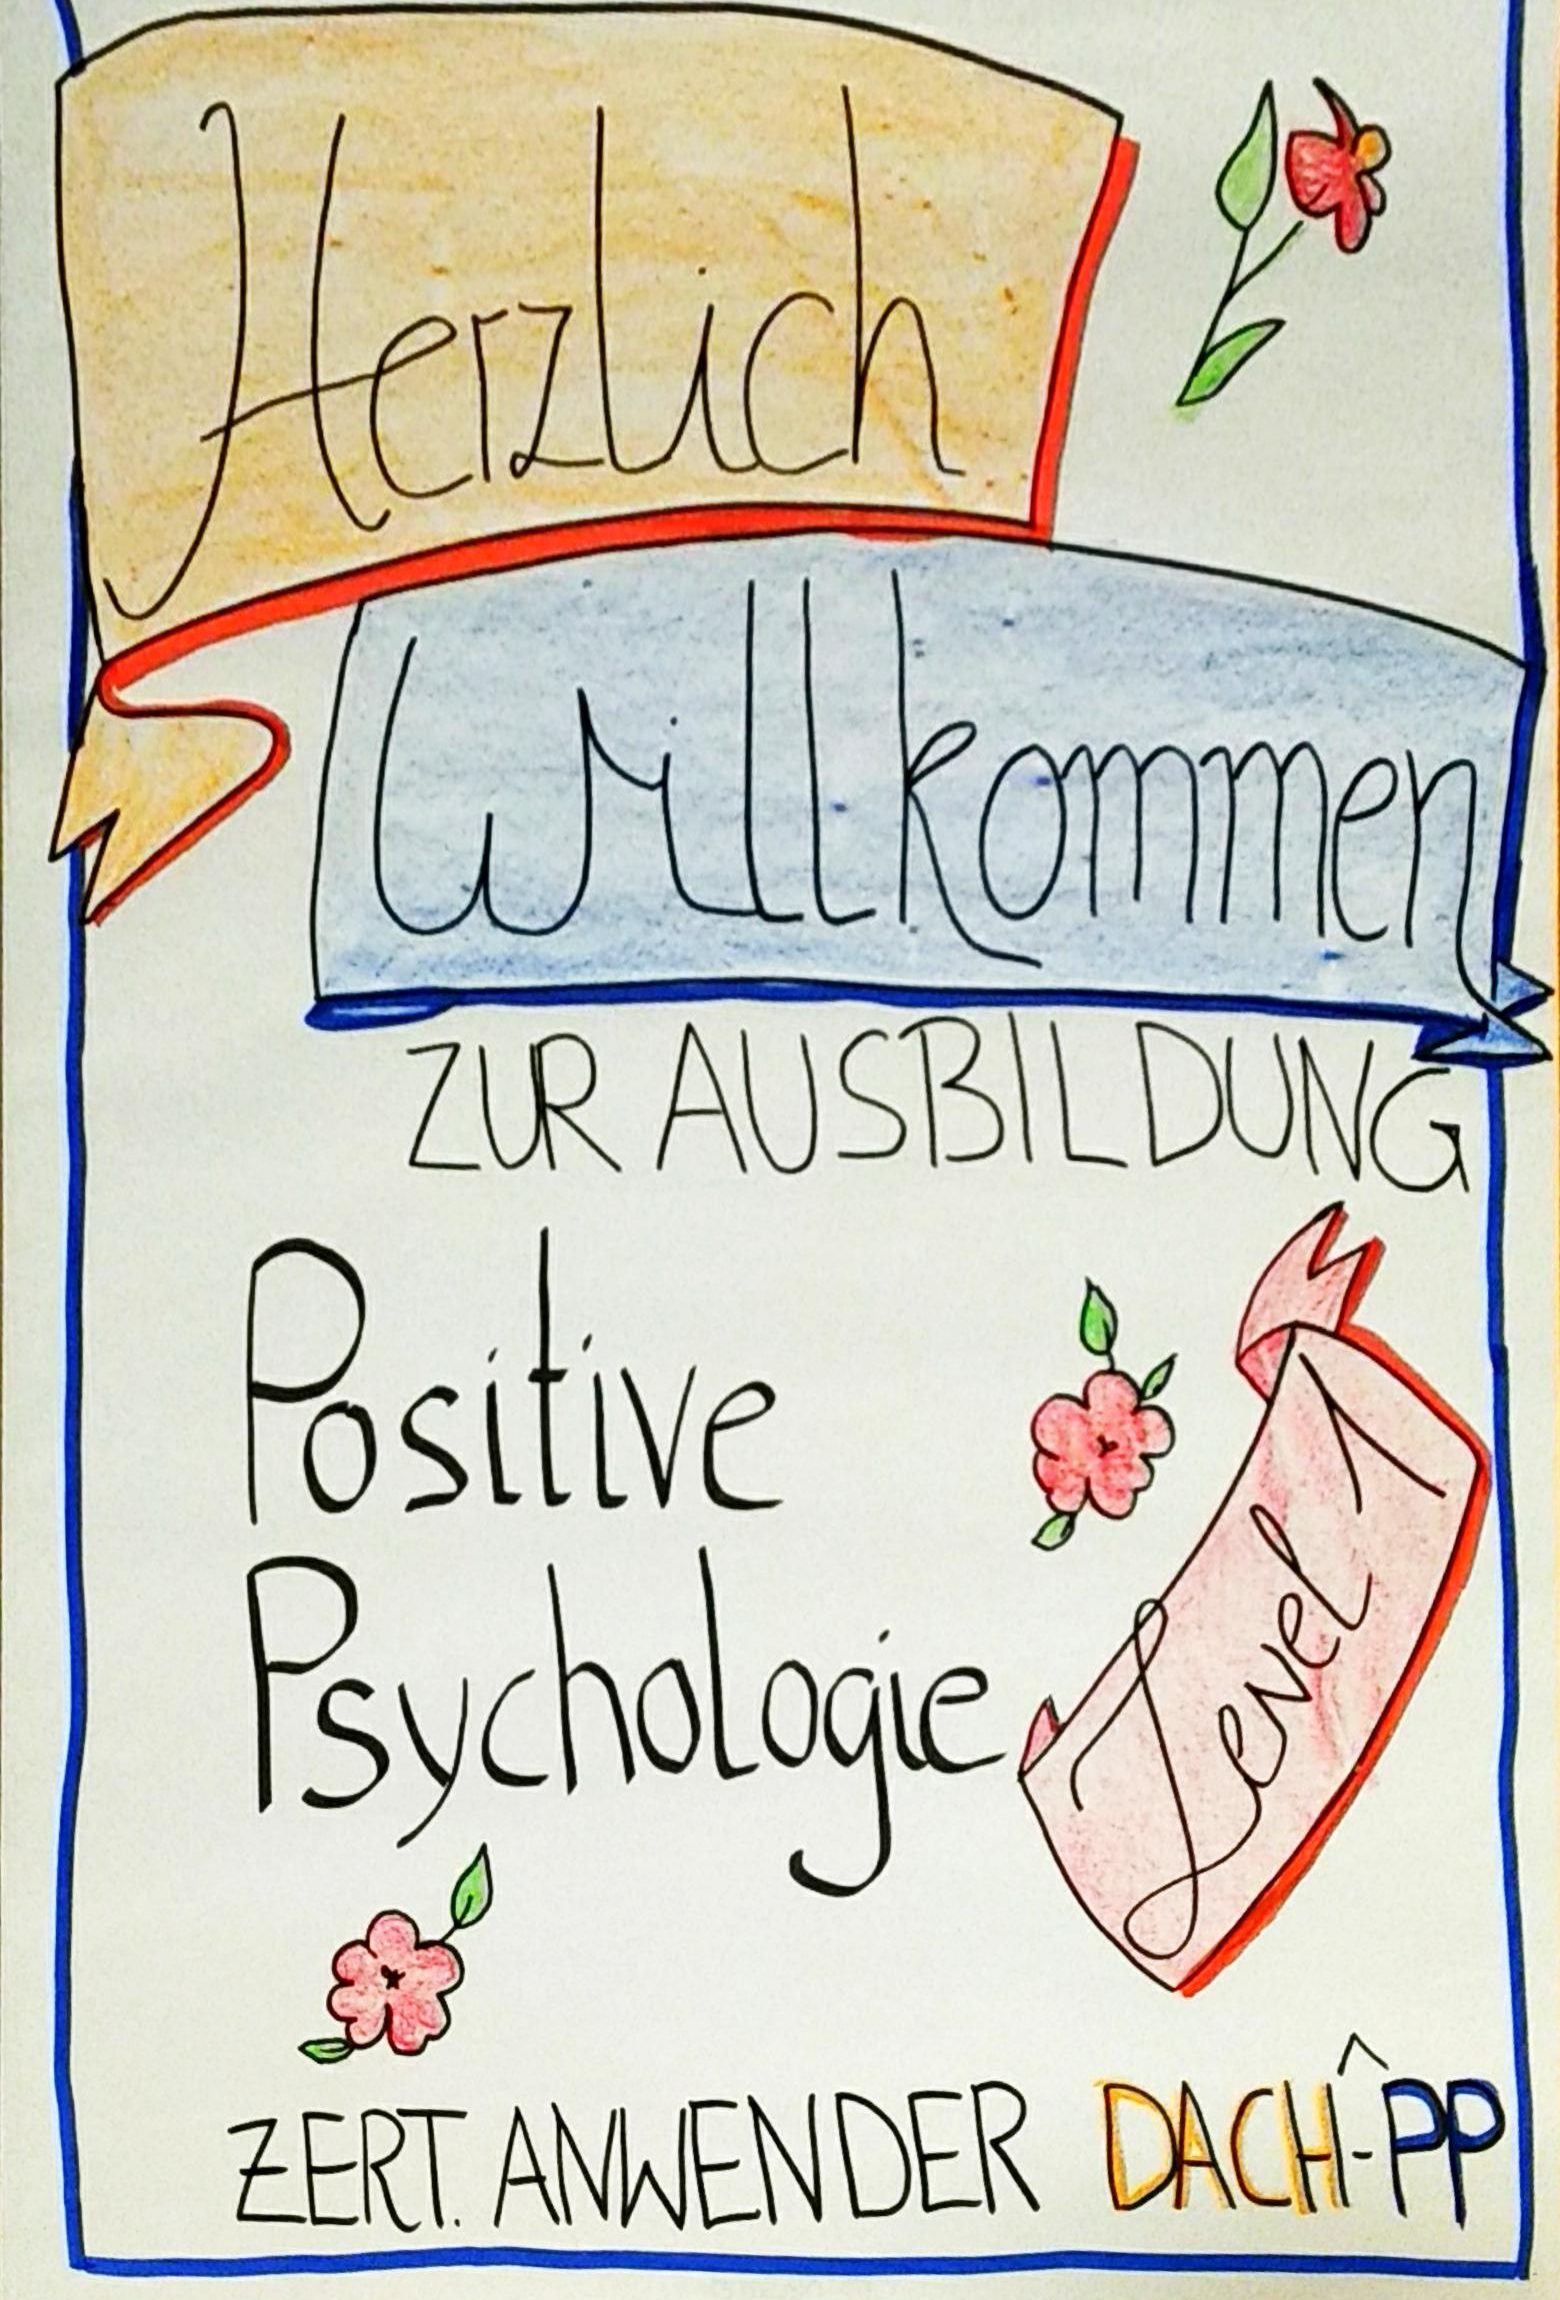 Herzlich
Willkommen
ZUR AUSBILDUNG
Positive
Psychologie
Level 1
ZERT. ANWENDER DACH-PP